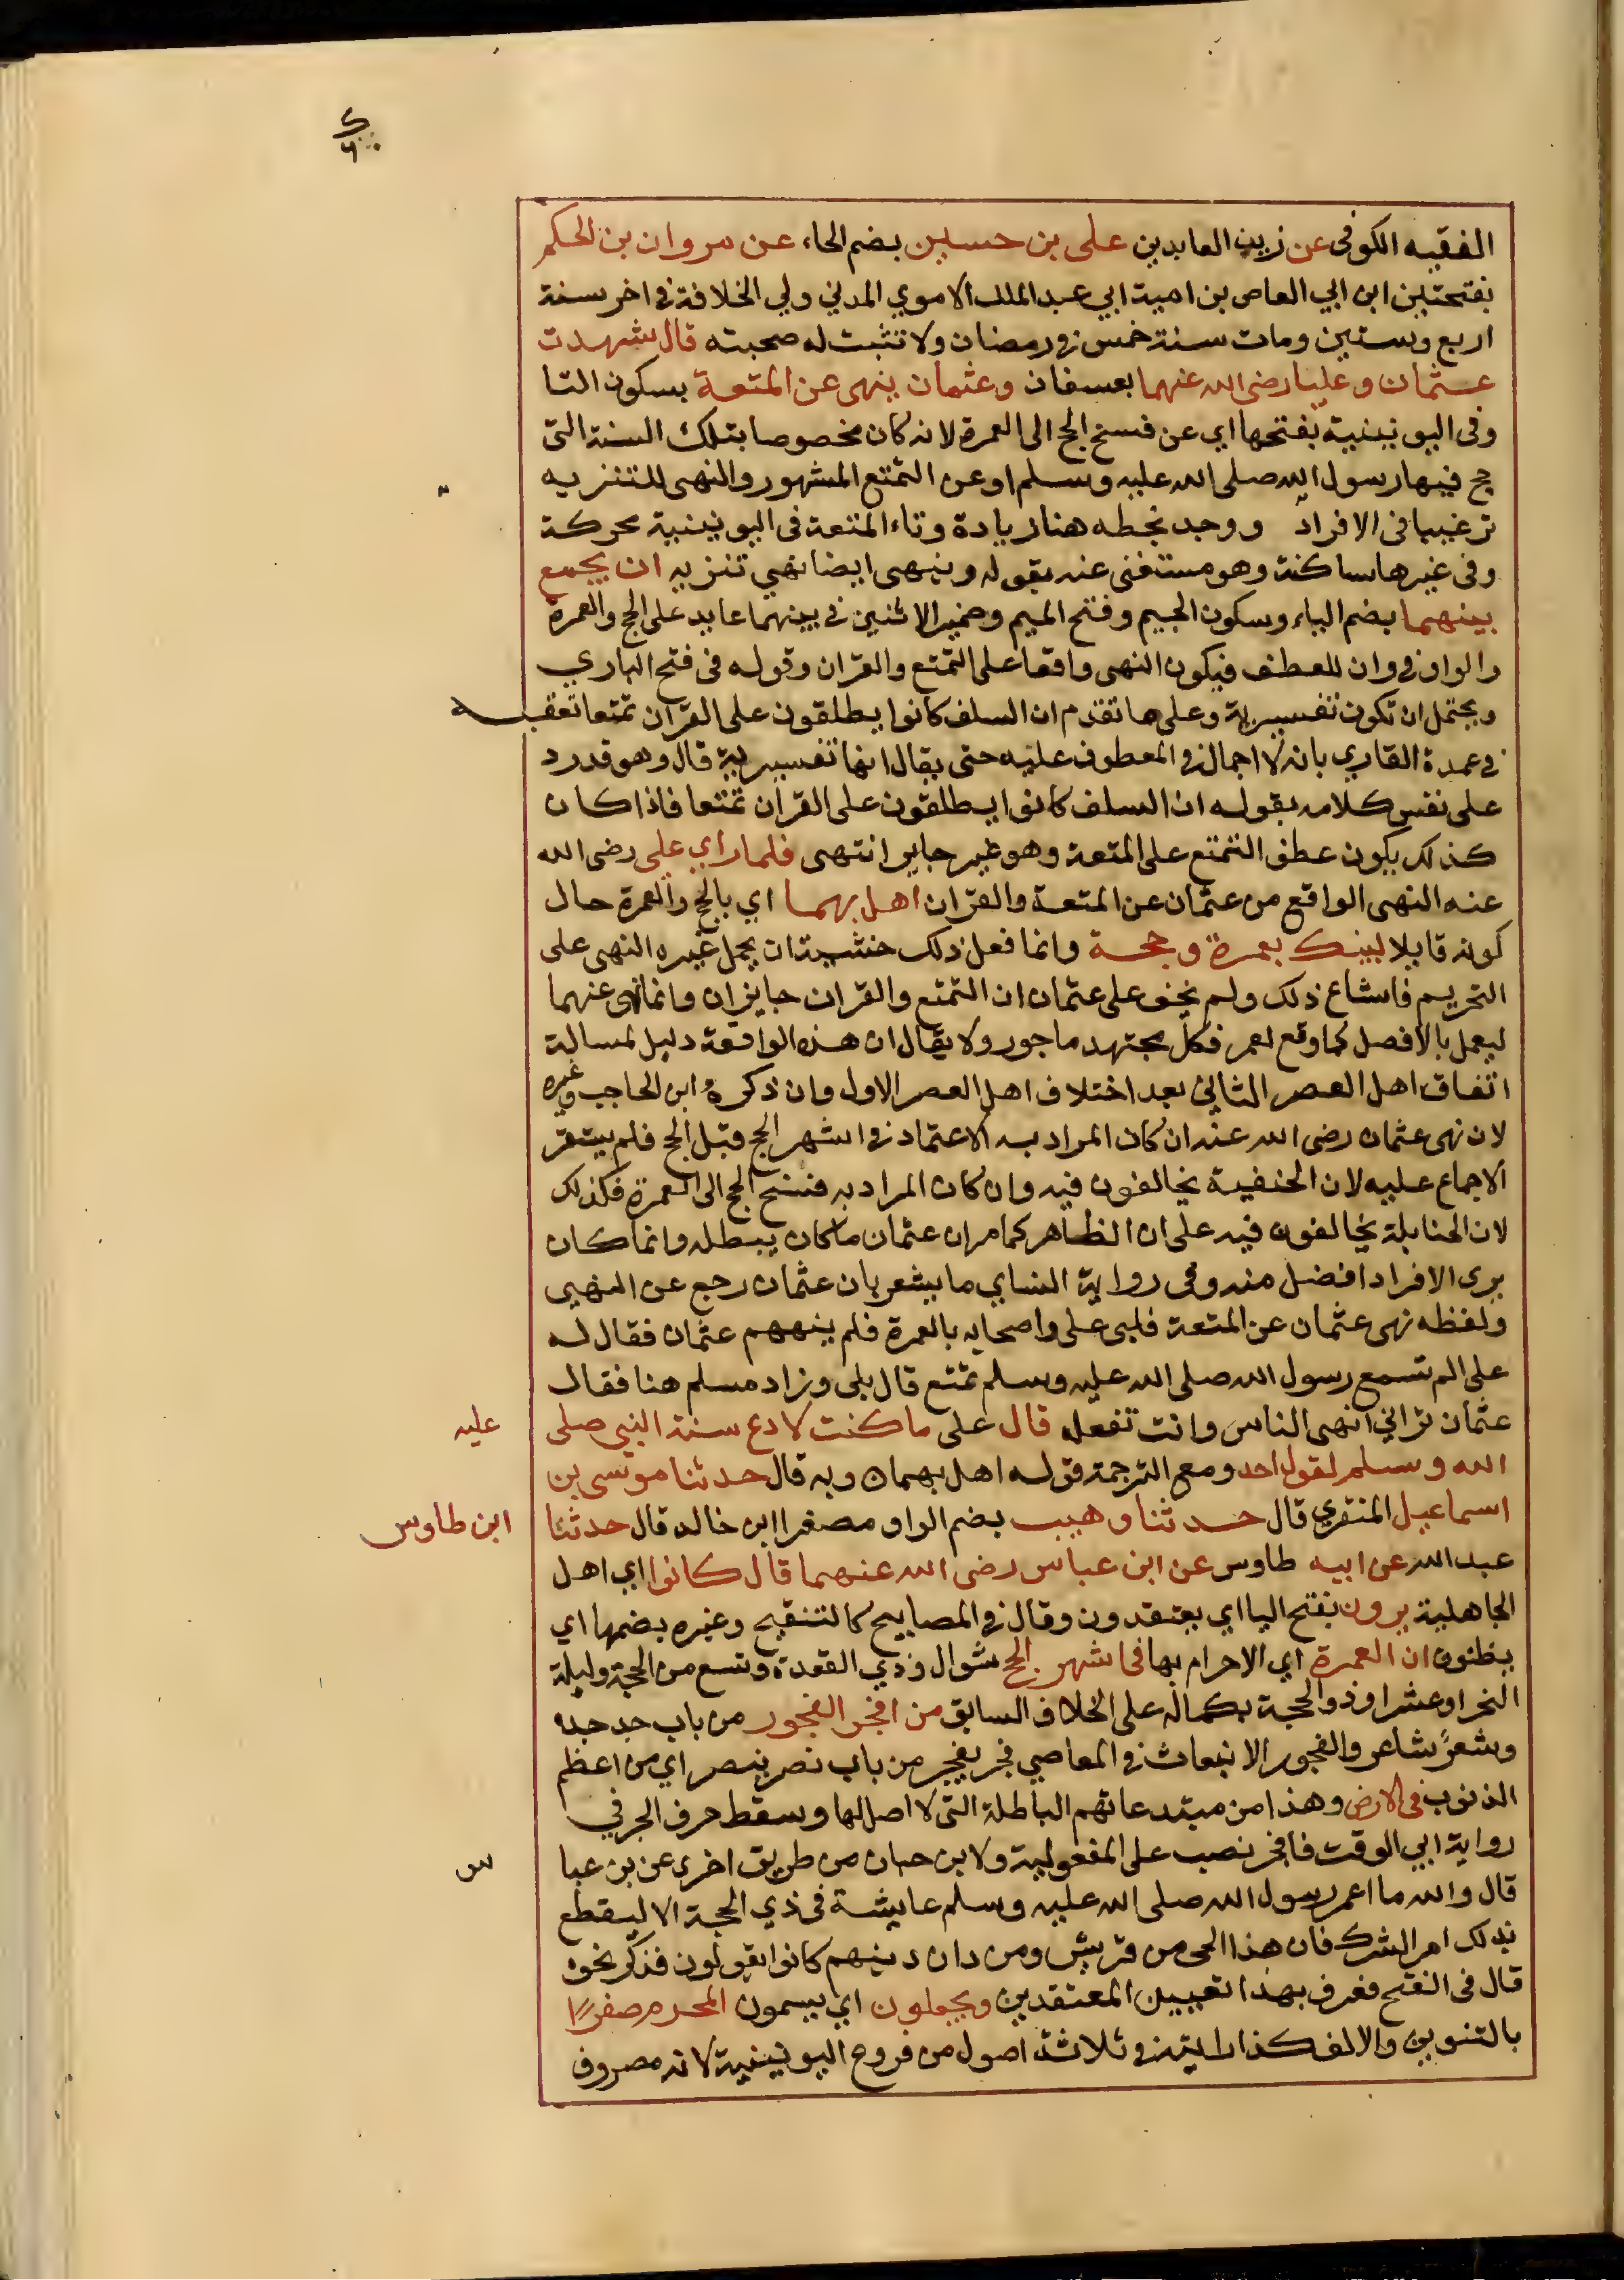 الفقيه الكوفي عن زين العابدين على بن حسين بضم الحاء عن مروان بن الحكم
بفتحتين ابن ابي العاص بن امية ابي عبد الملك الاموي المدني ولي الخلافة في اخر سنة
اربع وستين ومات سنة خمس في رمضان ولا تثبت له صحبته قال شهدت
عثمان وعليا رضى الله عنهما بعسفان وعثمان ينهى عن المتعة بسكون التا
وفى اليونينية بفتحها اي عن فسخ الحج الى العمرة لانه كان مخصوصا بتلك السنة التى
حج فيها رسول الله صلى الله عليه وسلم او عن التمتع المشهور والنهى للتنزيه
ترغيبا فى الافراد ووجد بخطه هنا زيادة وتاء المتعة فى اليونينية محركة
وفى غيرها ساكنة وهو مستغنى عنه بقوله وينهى ايضا نهي تنزيه ان يجمع
بينهما بضم الياء وسكون الجيم وفتح الميم وضمير الاثنين في بينهما عايد على الحج والعمرة
والواو في وان للعطف فيكون النهى واقعا على التمتع والقران وقوله فى فتح الباري
ويحتمل ان تكون تفسيرية وعلى ما تقدم ان السلف كانوا يطلقون على القران تمتعا تعقبه
في عمدة القاري بانه لا اجمال في المعطوف عليه حتى يقال انها تفسيرية قال وهو قد رد
على نفس كلامه بقوله ان السلف كانوا يطلقون على القران تمتعا فاذا كان
كذلك يكون عطف التمتع على المتعة وهو غير جايز انتهى فلما راي على رضى الله
عنه النهى الواقع من عثمان عن المتعة والقران اهل بهما اي بالحج والعمرة حال
كونه قايلا لبيك بعمرة وحجة وانما فعل ذلك خشية ان يحمل غيره النهى على
التحريم فاشاع ذلك ولم يخف على عثمان ان التمتع والقران جايزان وانما نهى عنهما
ليعمل بالافضل كما وقع لعمر فكل مجتهد ماجور ولا يقال ان هذه الواقعة دليل لمسالة
اتفاق اهل العصر الثاني بعد اختلاف اهل العصر الاول وان ذكره ابن الحاجب وغيره
لان نهى عثمان رضى الله عنه ان كان المراد به الاعتماد في اشهر الحج قبل الحج فلم يستقر
الاجماع عليه لان الحنفية يخالفون فيه وان كان المراد به فسخ الحج الى العمرة فكذلك
لان الحنابلة يخالفون فيه على ان الظاهر كما مر ان عثمان ما كان يبطله وانما كان
يرى الافراد افضل منه وفى رواية النساي ما يشعر بان عثمان رجع عن النهي
ولفظه نهى عثمان عن المتعة فلبى على واصحابه بالعمرة فلم ينههم عثمان فقال له
على الم تسمع رسول الله صلى الله عليه وسلم تمتع قال بلى وزاد مسلم هنا فقال
عثمان تراني انهى الناس وانت تفعله قال على ما كنت لادع سنة النبي صلى
عليه
الله وسلم لقول احد ومع الترجمة قوله اهل بهمان وبه قال حدثنا موسى بن
اسماعيل المنقري قال حدثنا وهيب بضم الواو مصغرا ابن خالد قال حدثنا
ابن طاوس
عبد الله عن ابيه طاوس عن ابن عباس رضى الله عنهما قال كانوا اي اهل
الجاهلية يرون بفتح اليا اي يعتقدون وقال في المصابيح كالتنقيح وغيره بضمها اي
يظنون ان العمرة اي الاحرام بها فى اشهر الحج شوال وذي القعدة وتسع من الحجة وليلة
النحر او عشر او ذو الحجة بكماله على الخلاف السابق من افجر الفجور من باب جد جده
وشعر شاعر والفجور الانبعاث في المعاصي فجر يفجر من باب نصر ينصر اي من اعظم
الذنوب فى الارض وهذا من مبتدعاتهم الباطلة التى لا اصل لها وسقط حرف الجر في
رواية ابي الوقت فافجر نصب على المفعولية ولابن حبان من طريق اخرى عن بن عبا
س
قال والله ما اعمر رسول الله صلى الله عليه وسلم عايشة فى ذي الحجة الا ليقطع
بذلك امر الشرك فان هذا الحى من قريش ومن دان دينهم كانوا يقولون فذكر نحوه
قال فى الفتح فعرف بهذا تعيين المعتقدين ويجعلون اي يسمون المحرم صفرًا
بالتنوين والالف كذا رايته في ثلاثة اصول من فروع اليونينية لانه مصروف